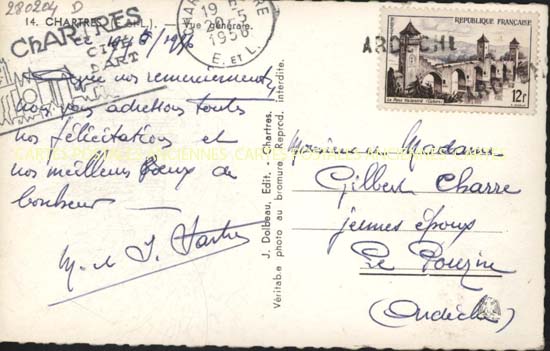 280204 D
14. CHARTRES (E.-&-L.) Vue générale.
CHARTRES
CITÉ
D'ART
CHARTRES GARE
19
5
1956
E. ET L.
ce 19/5/1956
nos remerciements
nous vous adressons toutes
nos félicitations et
nos meilleurs voeux de
bonheur
M. et J.
J. Dolbeau, Edit. Chartres.
Véritable photo au bromure. Reprod. interdite.
REPUBLIQUE FRANÇAISE
Le Pont Valentré (Cahors)
12f
POSTES
Monsieur Madame
Gilbert Charre
jeunes époux
Le Pouzin
(Ardèche)
CARTES POSTALES ANCIENNES